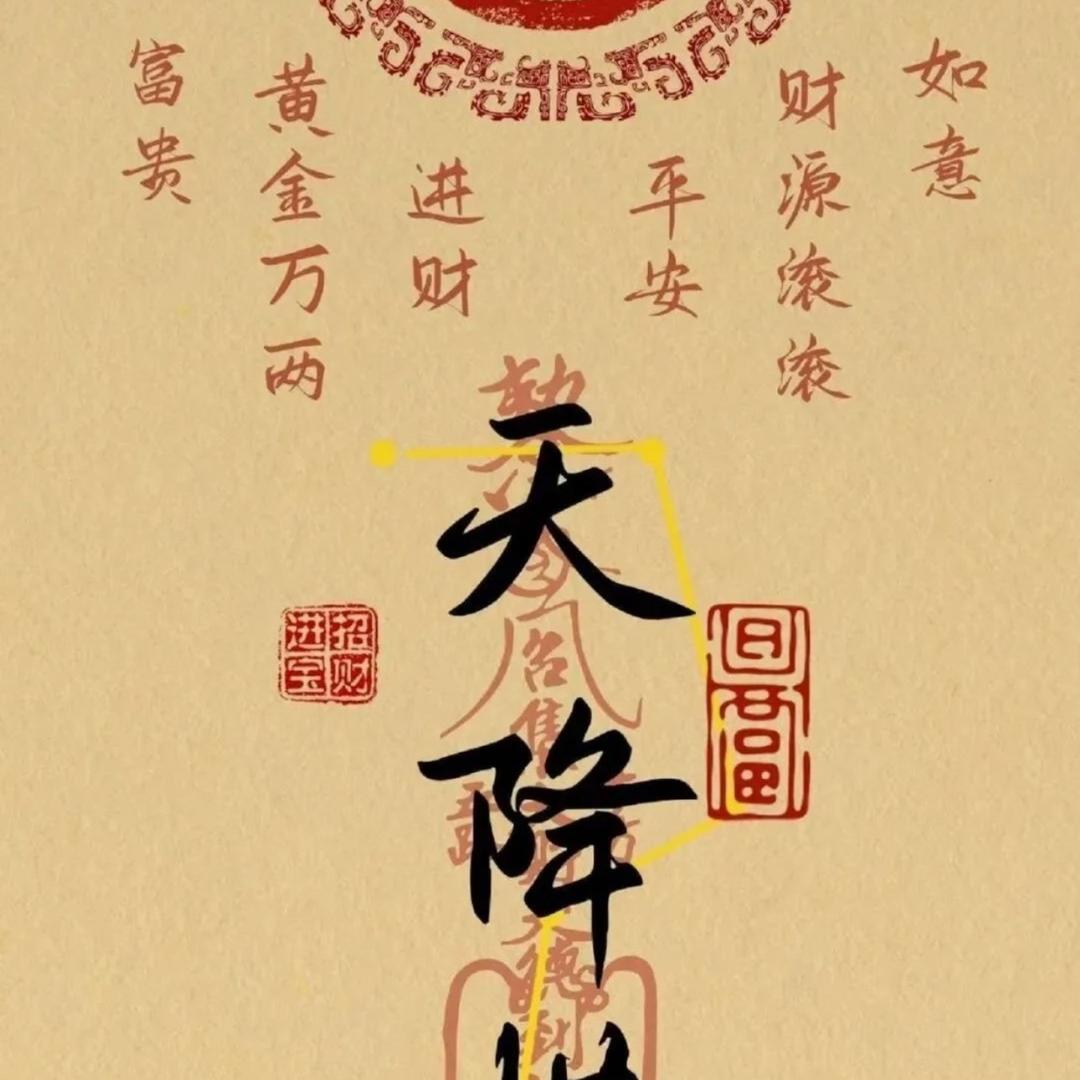 如意
财源滚滚
平安
进财
黄金万两
富贵
天降
招财
进宝